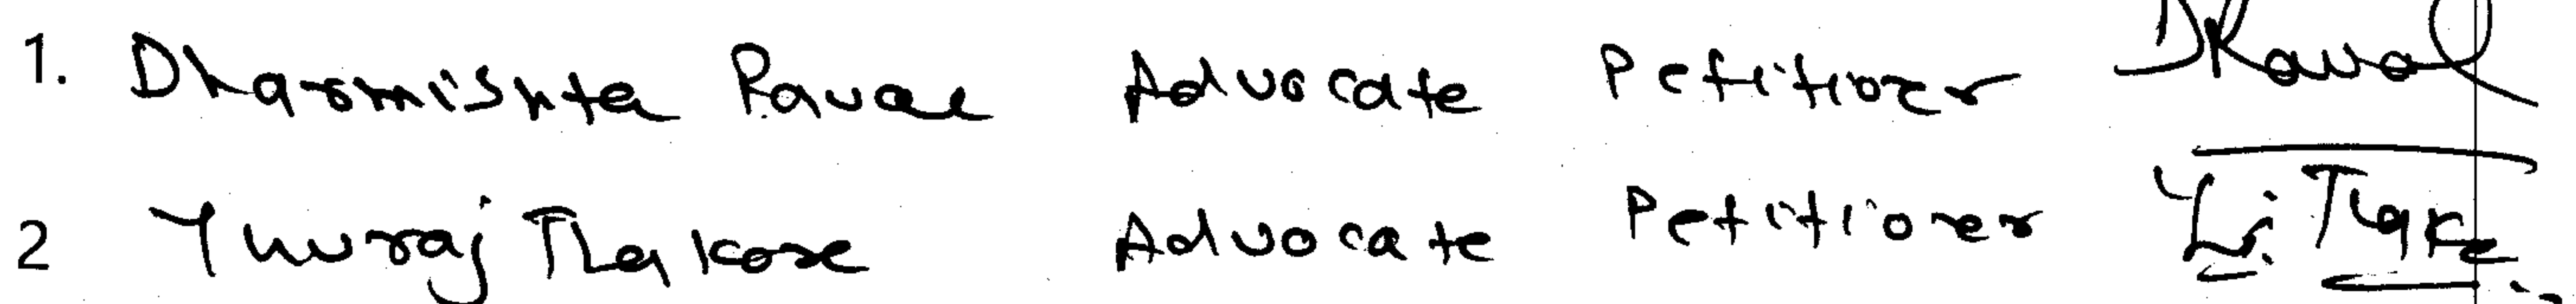 1. Dharmishta Raval Advocate Petitioner DRaval
2 Yuvraj Thakore Advocate Petitioner